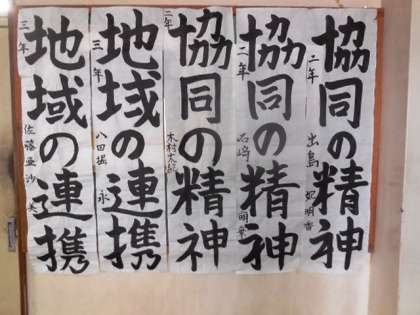 協同の精神
二年 出島 妃明香
協同の精神
二年 石崎 明
協同の精神
二年 木村太郎
地域の連携
三年 八田堀 永
地域の連携
三年 佐藤亜沙美